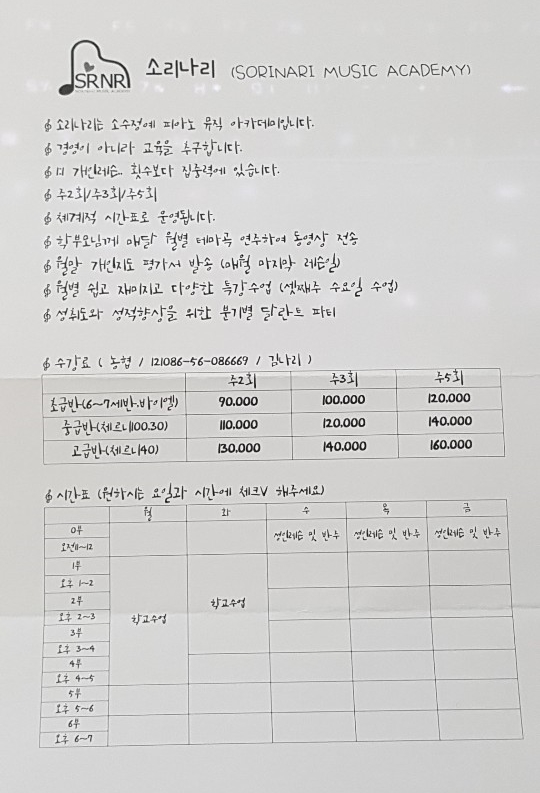 SRNR
소리나리 (SORINARI MUSIC ACADEMY)
소리나리는 소수정예 피아노 뮤직 아카데미입니다.
경영이 아니라 교육을 추구합니다.
1:1 개인레슨.. 횟수보다 집중력에 있습니다.
주2회/주3회/주5회
체계적 시간표로 운영됩니다.
학부모님께 매달 월별 테마곡 연주하여 동영상 전송
월말 개인지도 평가서 발송 (매월 마지막 레슨일)
월별 쉽고 재미지고 다양한 특강수업 (셋째주 수요일 수업)
성취도와 성적향상을 위한 분기별 달란트 파티
수강료 ( 농협 / 121086-56-086669 / 김나리 )
주2회 주3회 주5회
초급반(6~7세반.바이엘) 90.000 100.000 120.000
중급반(체르니100.30) 110.000 120.000 140.000
고급반(체르니40) 130.000 140.000 160.000
시간표 (원하시는 요일과 시간에 체크V 해주세요)
월 화 수 목 금
0부
오전11~12 성인레슨 및 반주 성인레슨 및 반주 성인레슨 및 반주
1부
오후 1~2
2부 학교수업
오후 2~3 학교수업
3부
오후 3~4
4부
오후 4~5
5부
오후 5~6
6부
오후 6~7